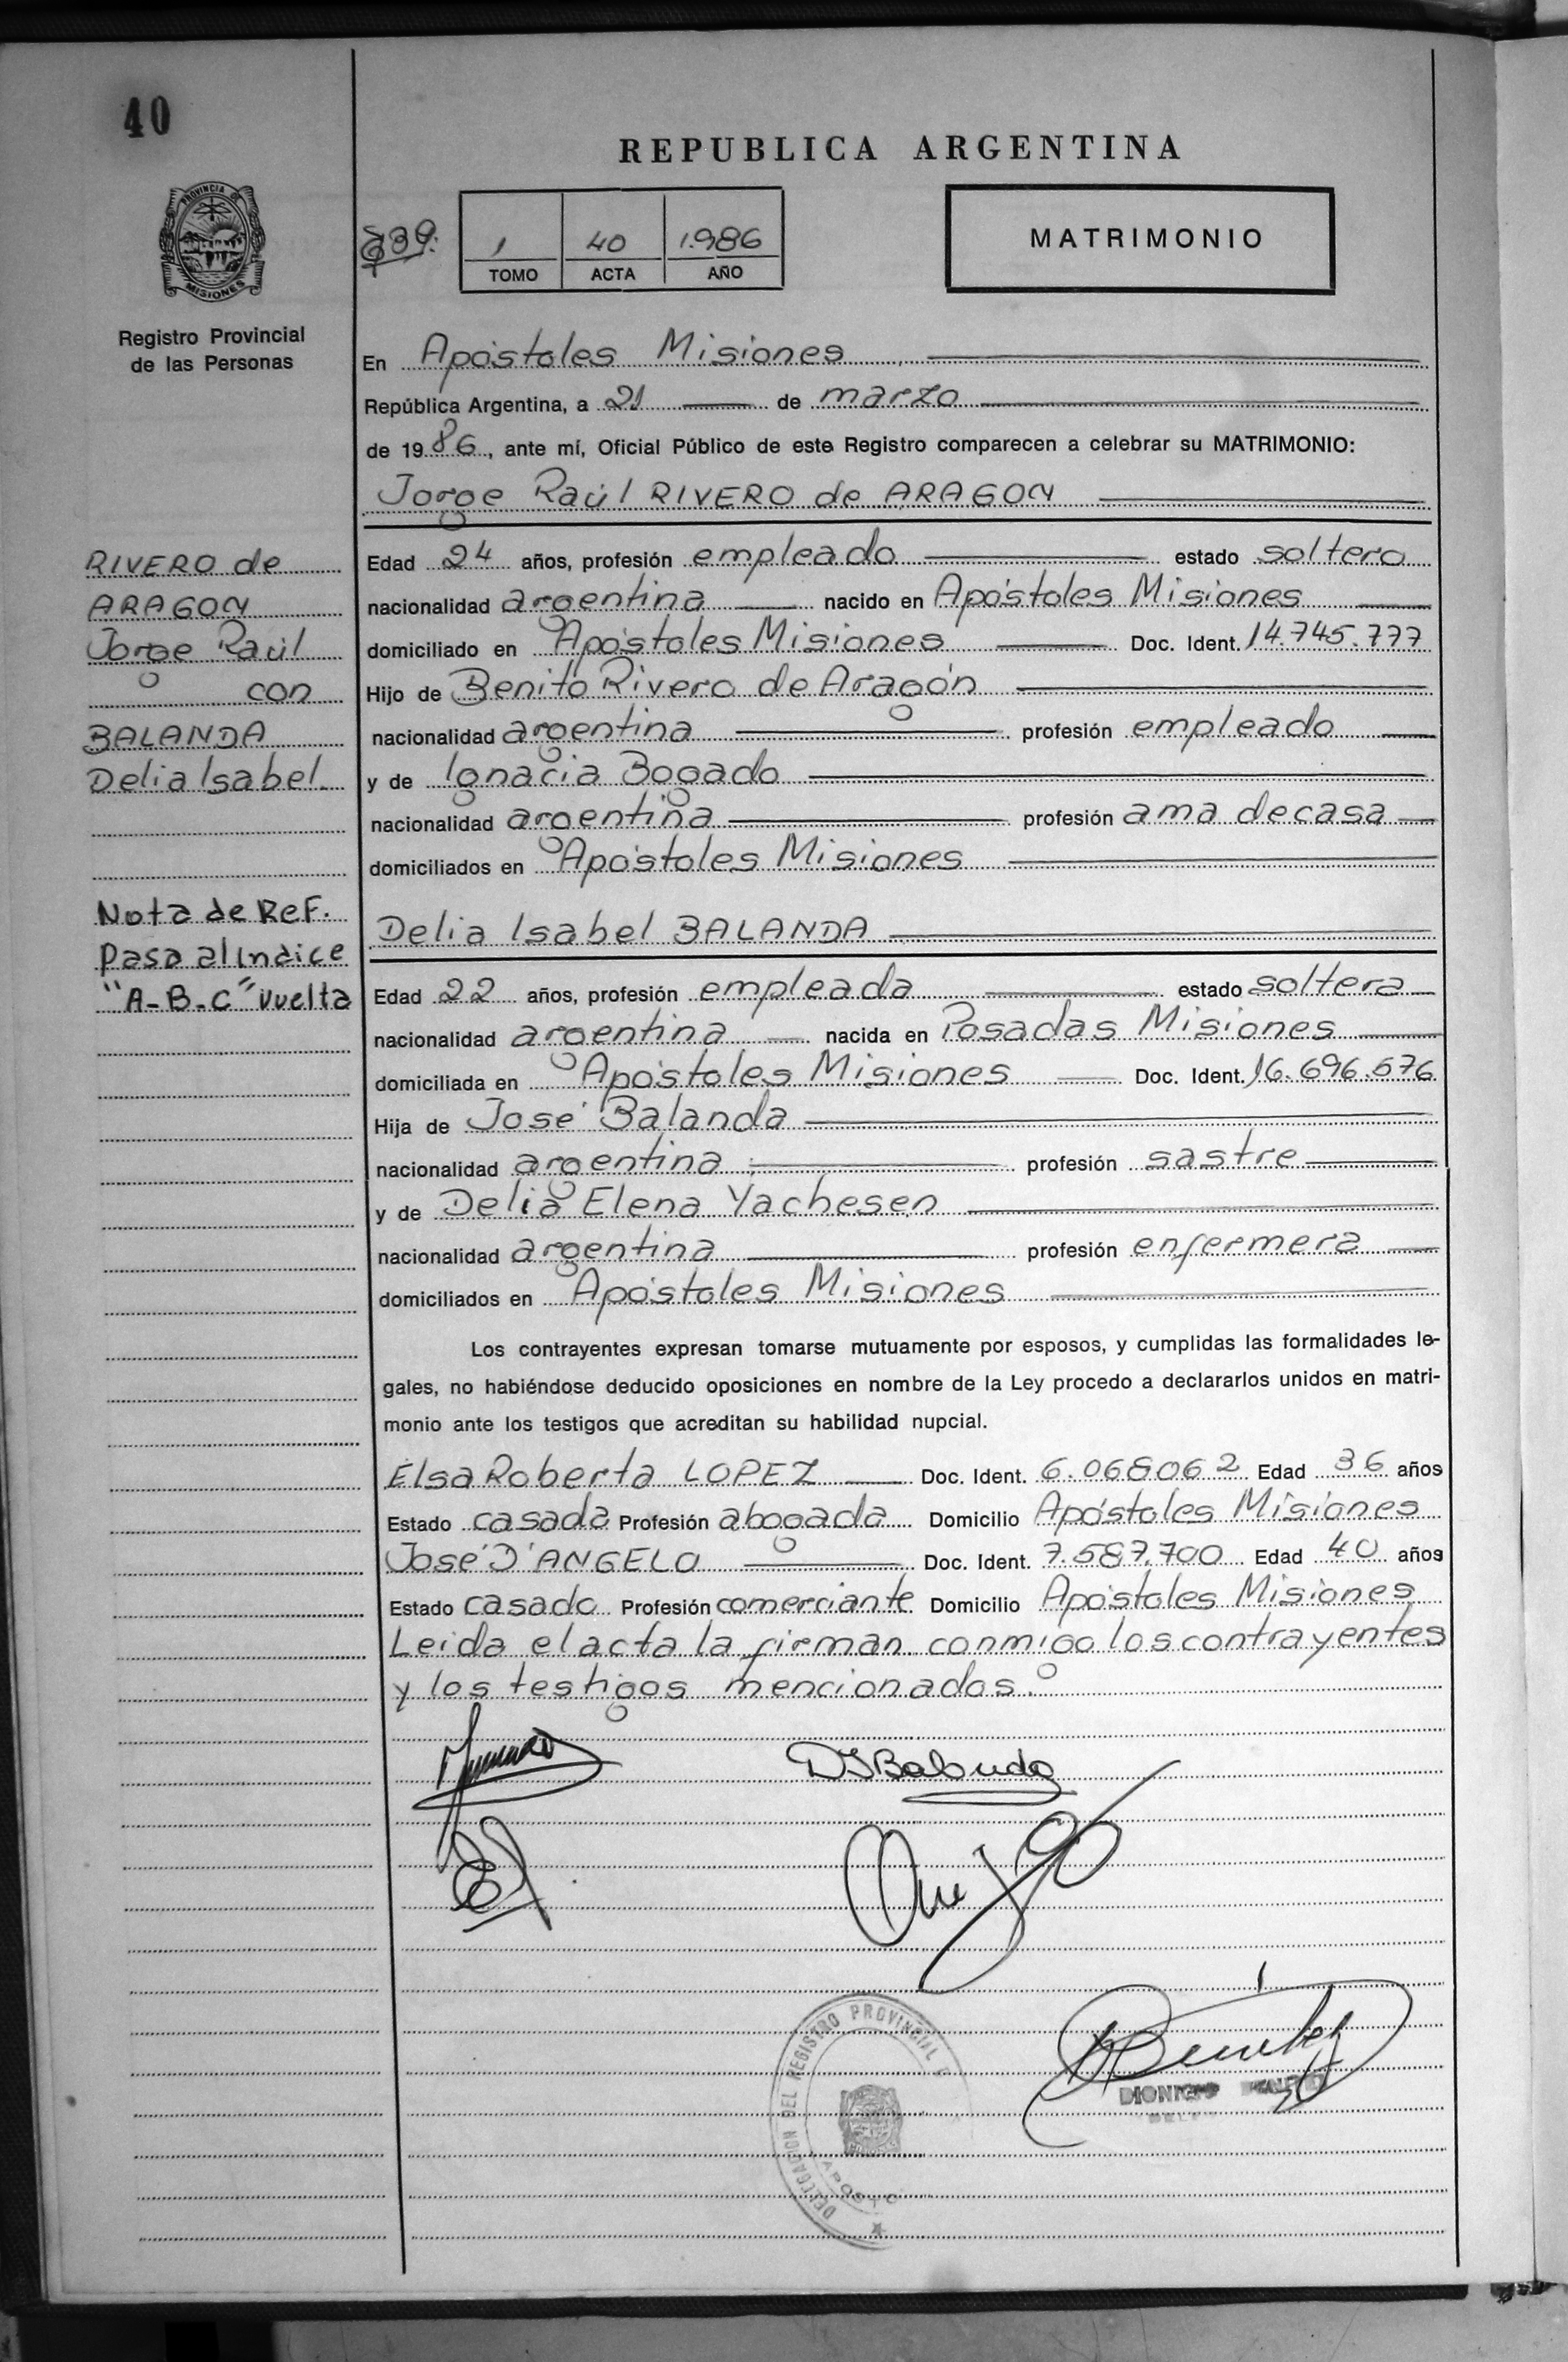 40
REPUBLICA ARGENTINA
PROVINCIA DE
MISIONES
Registro Provincial
de las Personas
1 40 1.986
TOMO ACTA AÑO
MATRIMONIO
En Apóstoles Misiones
República Argentina, a 21 de marzo
de 1986, ante mí, Oficial Público de este Registro comparecen a celebrar su MATRIMONIO:
Jorge Raúl RIVERO de ARAGON
RIVERO de
ARAGON
Jorge Raúl
con
BALANDA
Delia Isabel
Nota de Ref.
Pasa al Indice
"A-B-C" vuelta
Edad 24 años, profesión empleado estado soltero
nacionalidad argentina nacido en Apóstoles Misiones
domiciliado en Apóstoles Misiones Doc. Ident. 14.745.777
Hijo de Benito Rivero de Aragón
nacionalidad argentina profesión empleado
y de Ignacia Bogado
nacionalidad argentina profesión ama de casa
domiciliados en Apóstoles Misiones
Delia Isabel BALANDA
Edad 22 años, profesión empleada estado soltera
nacionalidad argentina nacida en Posadas Misiones
domiciliada en Apóstoles Misiones Doc. Ident. 16.696.576
Hija de José Balanda
nacionalidad argentina profesión sastre
y de Delia Elena Yachesen
nacionalidad argentina profesión enfermera
domiciliados en Apóstoles Misiones
Los contrayentes expresan tomarse mutuamente por esposos, y cumplidas las formalidades le-
gales, no habiéndose deducido oposiciones en nombre de la Ley procedo a declararlos unidos en matri-
monio ante los testigos que acreditan su habilidad nupcial.
Elsa Roberta LOPEZ Doc. Ident. 6.068062 Edad 36 años
Estado casada Profesión abogada Domicilio Apóstoles Misiones
José D'ANGELO Doc. Ident. 7.587.700 Edad 40 años
Estado casado Profesión comerciante Domicilio Apóstoles Misiones
Leida el acta la firman conmigo los contrayentes
y los testigos mencionados.
DIBalanda
DELEGACION DEL REGISTRO PROVINCIAL